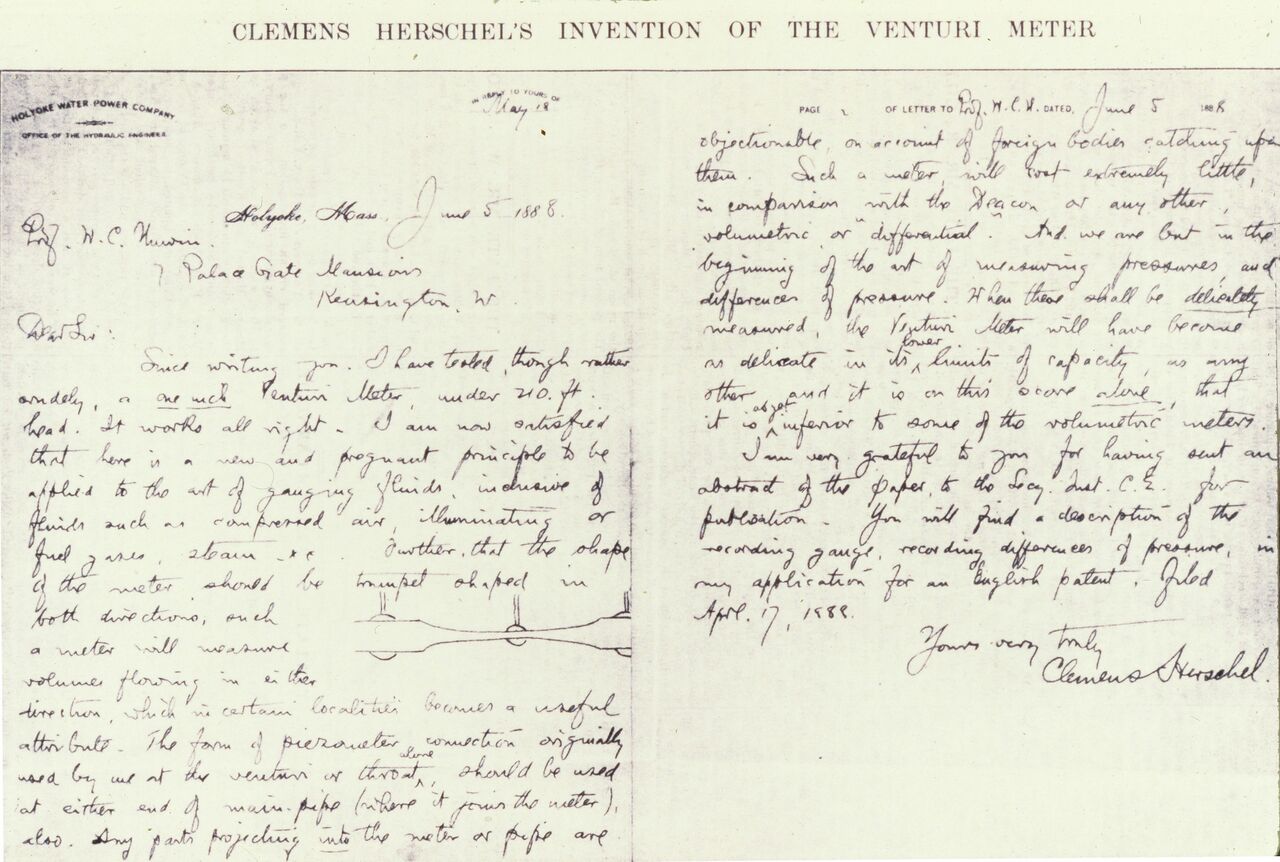 CLEMENS HERSCHEL'S INVENTION OF THE VENTURI METER
HOLYOKE WATER POWER COMPANY
OFFICE OF THE HYDRAULIC ENGINEER
IN REPLY TO YOURS OF
May 18
Holyoke, Mass. June 5 1888.
Prof. W. C. Unwin.
7 Palace Gate Mansions
Kensington. W.
Dear Sir:
Since writing you. I have tested, though rather
crudely, a one inch Venturi Meter, under 210. ft.
head. It works all right. I am now satisfied
that here is a new and pregnant principle to be
applied to the art of gauging fluids, inclusive of
fluids such as compressed air, illuminating or
fuel gases, steam &c. Further, that the shape
of the meter should be trumpet shaped in
both directions, such
a meter will measure
volumes flowing in either
direction, which in certain localities becomes a useful
attribute. The form of piezometer connection originally
used by me at the venturi or throat alone, should be used
at either end of main-pipe (where it joins the meter),
also. Any parts projecting into the meter or pipe are
PAGE 2 OF LETTER TO Prof. W. C. U. DATED, June 5 1888
objectionable, on account of foreign bodies catching upon
them. Such a meter, will cost extremely little,
in comparison with the Deacon or any other,
volumetric or "differential". And we are but in the
beginning of the art of measuring pressures, and
differences of pressure. When these shall be delicately
measured, the Venturi Meter will have become
as delicate in its lower limits of capacity, as any
other and it is on this score alone, that
it is as yet inferior to some of the volumetric meters.
I am very grateful to you for having sent an
abstract of the paper, to the Secy. Inst. C. E. for
publication. You will find a description of the
recording gauge, recording differences of pressure, in
my application for an English patent. Filed
Apr. 17, 1888.
Yours very truly
Clemens Herschel.